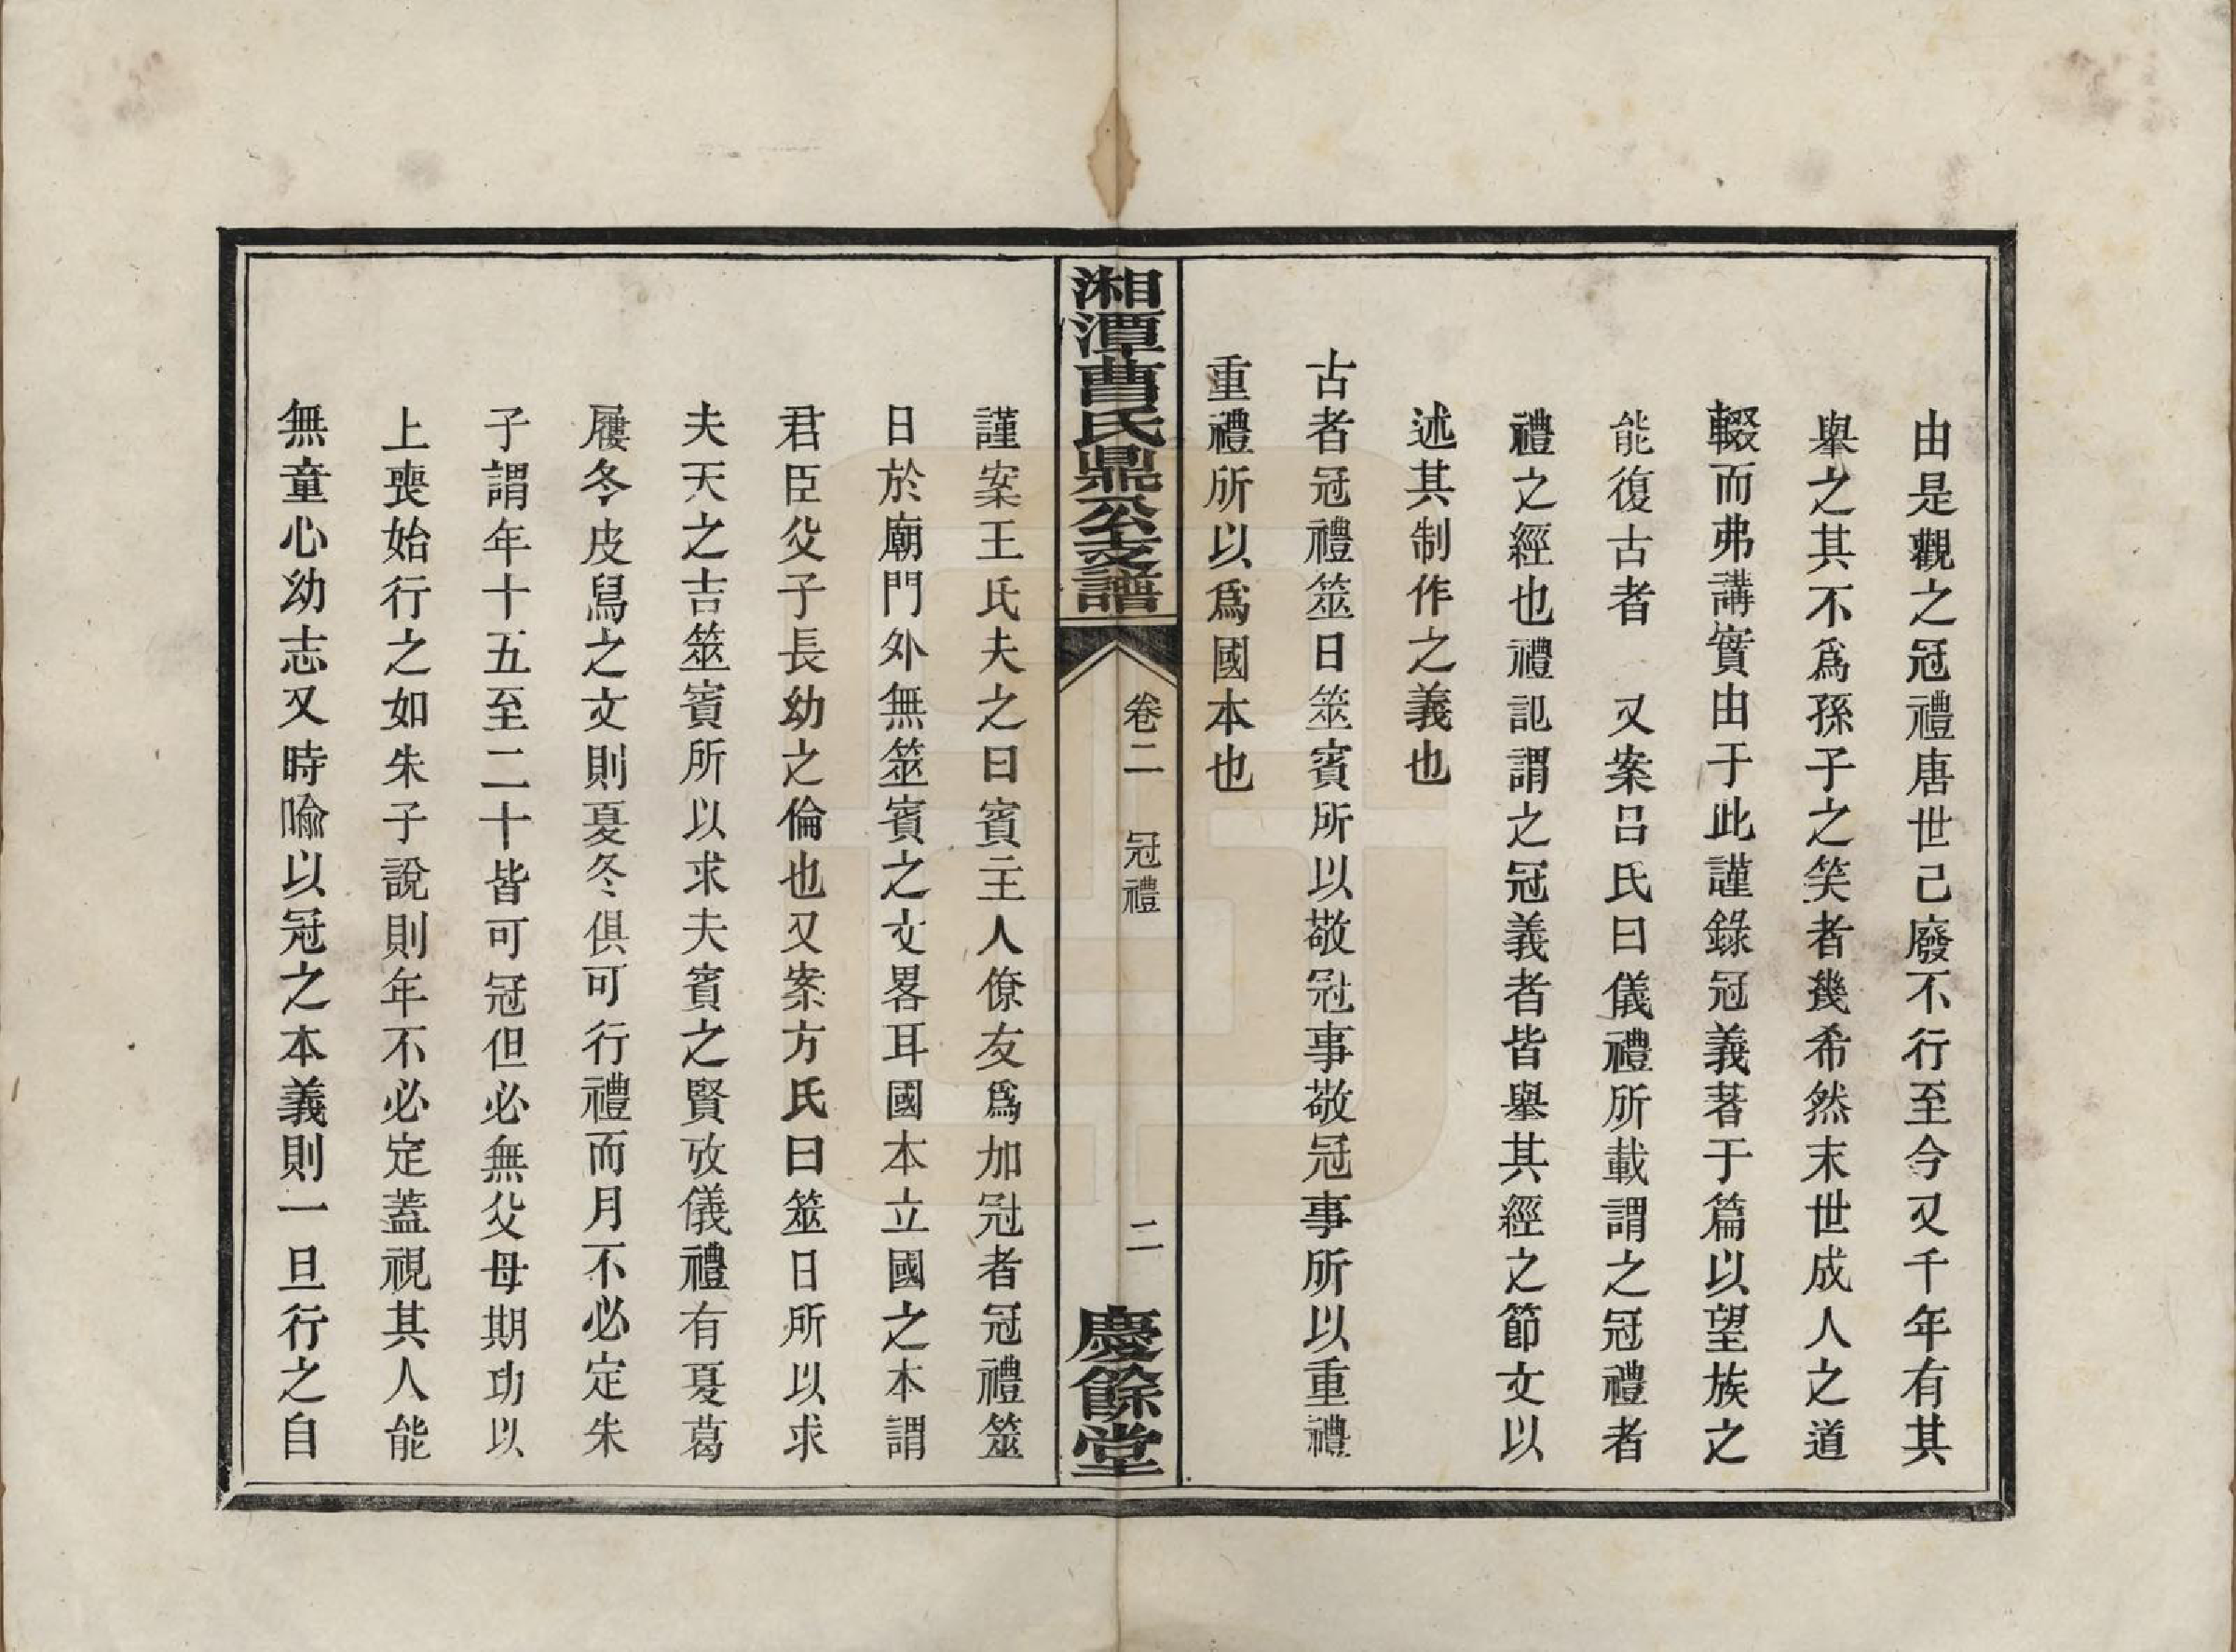 由是觀之冠禮唐世已廢不行至今又千年有其
舉之其不爲孫子之笑者幾希然末世成人之道
輟而弗講實由于此謹錄冠義著于篇以望族之
能復古者　又案呂氏曰儀禮所載謂之冠禮者
禮之經也禮記謂之冠義者皆舉其經之節文以
述其制作之義也
古者冠禮筮日筮賓所以敬冠事敬冠事所以重禮
重禮所以爲國本也
湘潭曹氏鼎公支譜
卷二　冠禮
二
慶餘堂
謹案王氏夫之曰賓主人僚友爲加冠者冠禮筮
日於廟門外無筮賓之文畧耳國本立國之本謂
君臣父子長幼之倫也又案方氏曰筮日所以求
夫天之吉筮賓所以求夫賓之賢攷儀禮有夏葛
屨冬皮舄之文則夏冬俱可行禮而月不必定朱
子謂年十五至二十皆可冠但必無父母期功以
上喪始行之如朱子說則年不必定蓋視其人能
無童心幼志又時喻以冠之本義則一旦行之自